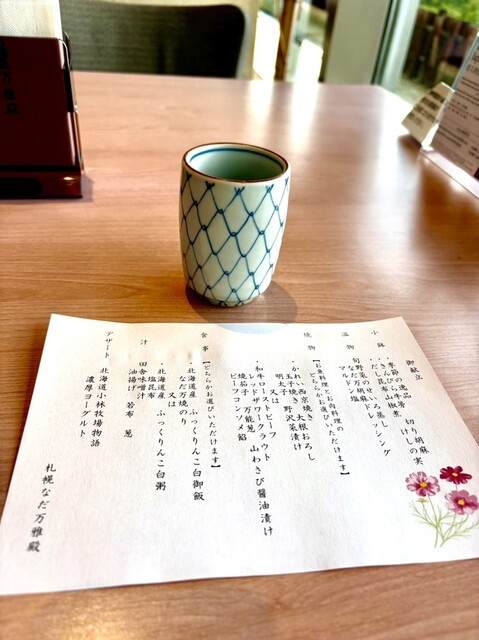 御献立
小鉢
・季節の逸品
・きんぴら牛蒡 切りし胡麻
・だし昆布山椒煮 松の実
温物
旬野菜のせいろ蒸し
なだ万胡麻ドレッシング
マルドン塩
焼物
【お魚料理とお肉料理の
どちらかお選びいただけます】
・かれい西京焼き 大根おろし
玉子焼き 野沢菜漬け
明太子
又は
・和牛ローストビーフ 山わさび醤油漬け
レッドザワークラウト
焼茄子 万能葱
ビーフコンソメ餡
食事
【どちらかお選びいただけます】
・北海道産 ふっくりんこ白御飯
なだ万焼のり
又は
・北海道産 ふっくりんこ白粥
塩昆布
汁
田舎味噌汁
油揚げ 若布 葱
デザート
北海道小林牧場物語
濃厚ヨーグルト
札幌なだ万雅殿